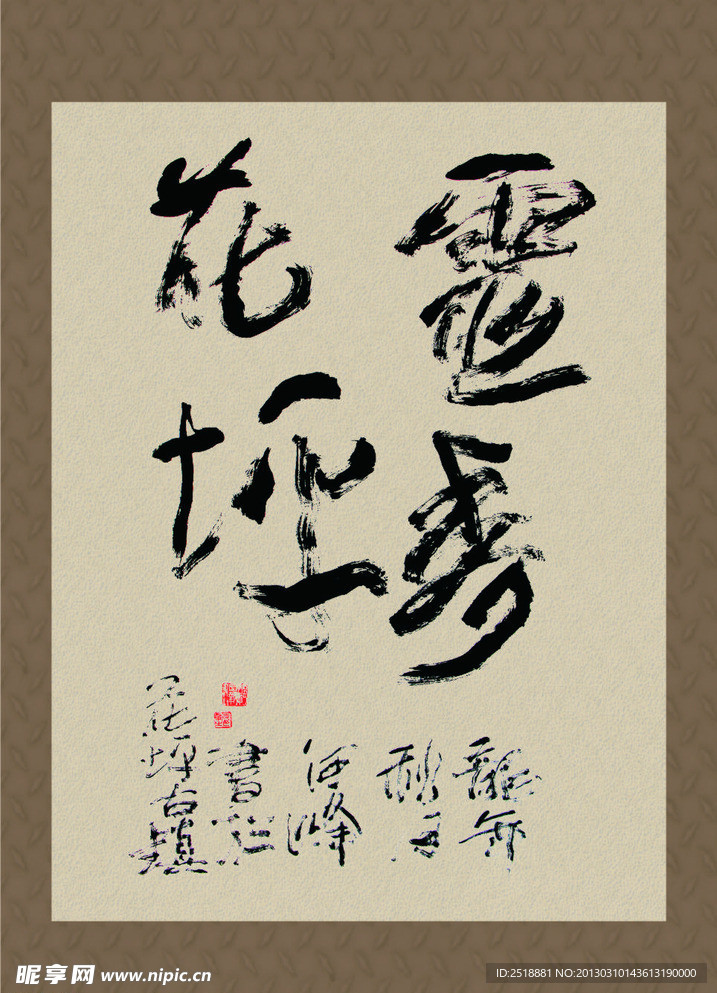 靈秀
花坪
龍年
秋月
何峰
書於
花坪古鎮
昵享网 www.nipic.cn
ID:2518881 NO:20130310143613190000